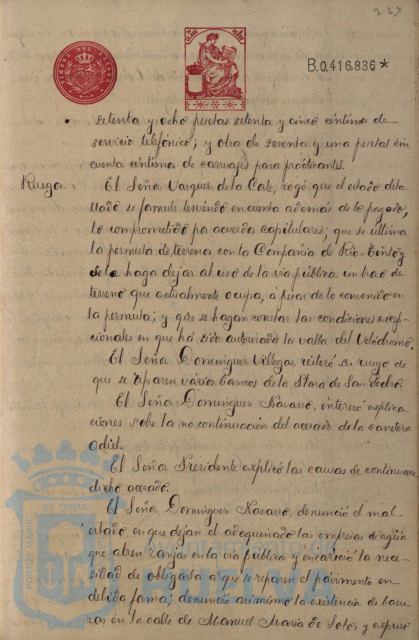 223
B.0.416.836*
setenta y ocho pesetas setenta y cinco céntimos de
servicio telefónico; y otra de sesenta y una pesetas cin
cuenta céntimos de carruajes para practicantes.
Ruegos
El Señor Vazquez de la Corte, rogó que el estado de la
se formule teniendo en cuenta además de lo pagado,
lo comprometido por acuerdos capitulares; que se ultime
la permuta de terrenos con la Compañía de Rio-Tinto y
se le haga dejar al uso de la vía pública un trozo de
terreno que actualmente ocupa, á pesar de lo convenido en
la permuta; y que se hagan constar las condiciones excep-
cionales en que ha sido autorizada la valla del Velódromo.
El Señor Dominguez Villegas, reiteró su ruego de
que se reparen varios bancos de la Plaza de San Pedro.
El Señor Dominguez Navarro, interesó explica
ciones sobre la no continuación del acerado de la carretera
Odiel.
El Señor Presidente explicó las causas de
dicho acerado.
El Señor Dominguez Navarro, denunció el mal
estado en que dejan el adoquinado las empresas de agua
que abren zanjas en la vía pública y encareció la nece-
sidad de obligarla a que se reparen el pavimento en
debida forma; denunció asimismo la existencia de
en la calle de Manuel María de Soto, y expuso